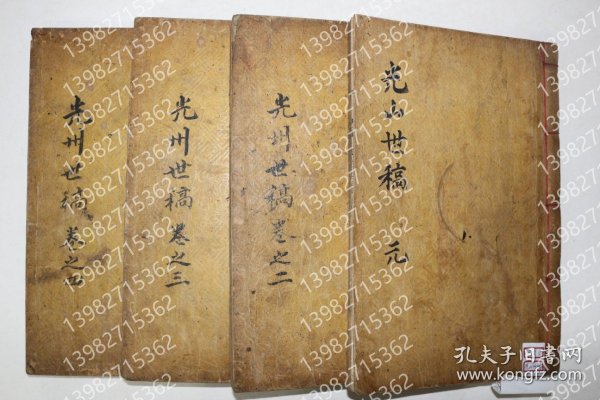 光山世稿 元
光州世稿 卷之二
光州世稿 卷之三
光州世稿 卷之四
13982715362
孔夫子旧書网
www.kongfz.com